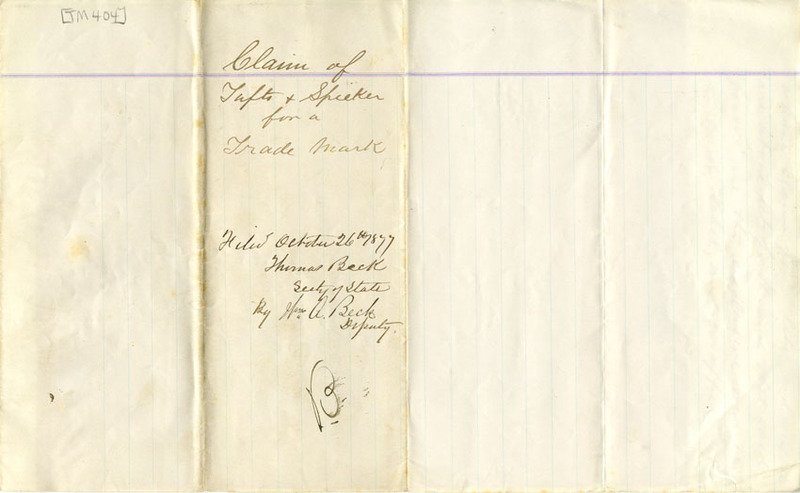 [TM 404]
Claim of
Tufts & Spieker
for a
Trade Mark
Filed October 26th 1877
Thomas Beck
Secty of State
By Wm A. Beck
Deputy.
B